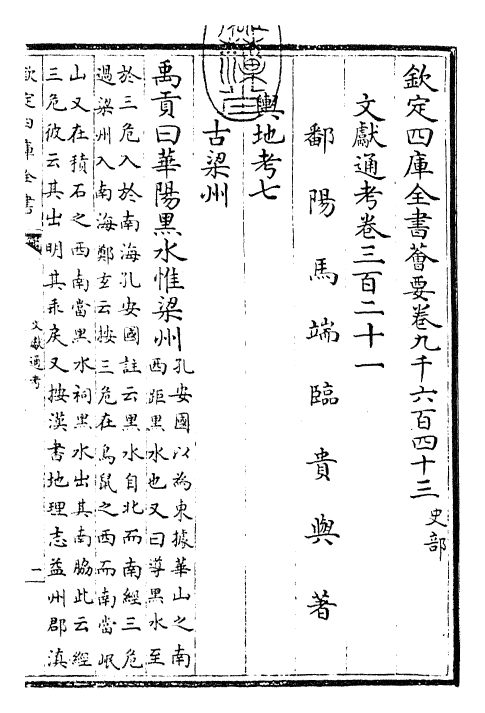 欽定四庫全書薈要卷九千六百四十三 史部
文獻通考卷三百二十一
鄱陽馬端臨貴與著
輿地考七
古梁州
禹貢曰華陽黑水惟梁州 孔安國以為東據華山之南
西距黑水也又曰導黑水至
於三危入於南海孔安國註云黑水自北而南經三危
過梁州入南海鄭玄云按三危在鳥鼠之西而南當岷
山又在積石之西南當黑水祠黑水出其南脇此云經
三危彼云其出明其乖戾又按漢書地理志益州郡滇
欽定四庫全書
文獻通考
一